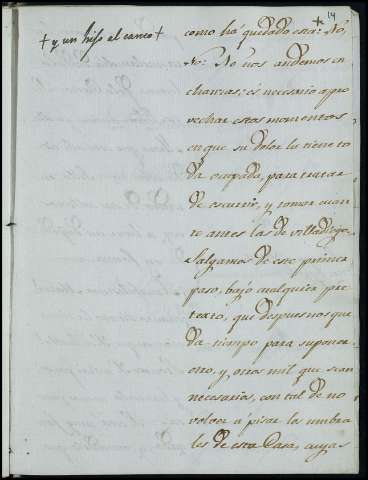 14
+ y un hijo al canto +
como há quedado esta? No,
No: No nos andemos en
chanzas; es necesario apro
vechar estos momentos
en que su dolor la tiene to
da ocupada, para tratar
de escurrir, y tomar cuan
to antes las de villadiego.
Salgamos de este primer
paso, bajo cualquier pre
texto, que despues nos que
da tiempo para suponer
otro, y otros mil que sean
necesarios, con tal de no
volver á pisar los umbra
les de esta Casa, cuyas